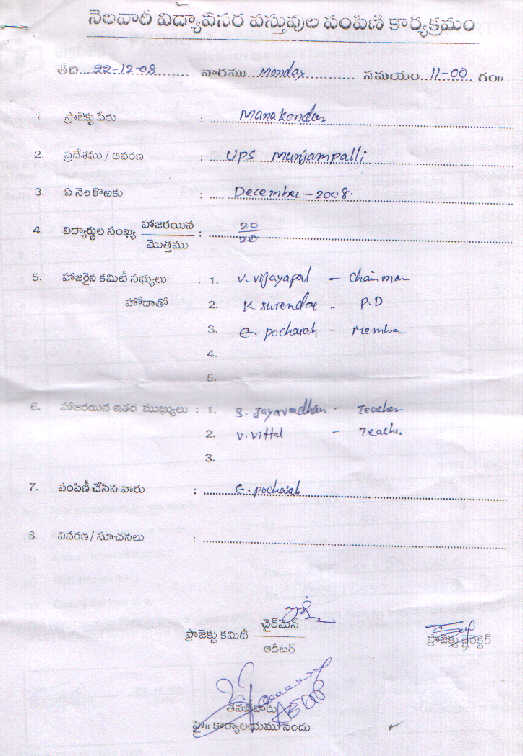 నెలవారీ విద్యావసర వస్తువుల పంపిణి కార్యక్రమం
తేది 22-12-08 వారము Monday సమయం 11-00 గం॥
1. ప్రాజెక్టు పేరు : Manakondur
2. ప్రదేశము / ఆవరణ : UPS Munjampalli
3. ఏ నెల కొఱకు : December - 2008
4. విద్యార్థుల సంఖ్య హాజరయిన / మొత్తము : 20/20
5. హాజరైన కమిటీ సభ్యులు : 1. V. Vijayapal - Chairman
హోదాతో 2. K Surendar - P.D
3. E. Pochaiah - Member
4.
5.
6. హాజరయిన ఇతర ముఖ్యులు : 1. S. Jayavardhan - Teacher
2. V. Vittal - Teacher
3.
7. పంపిణీ చేసిన వారు : E. Pochaiah
8. వివరణ / సూచనలు :
ప్రాజెక్టు కమిటీ చైర్‌మన్ ప్రాజెక్టు డైరెక్టర్
ఆడిటర్
కార్యాలయము నందు